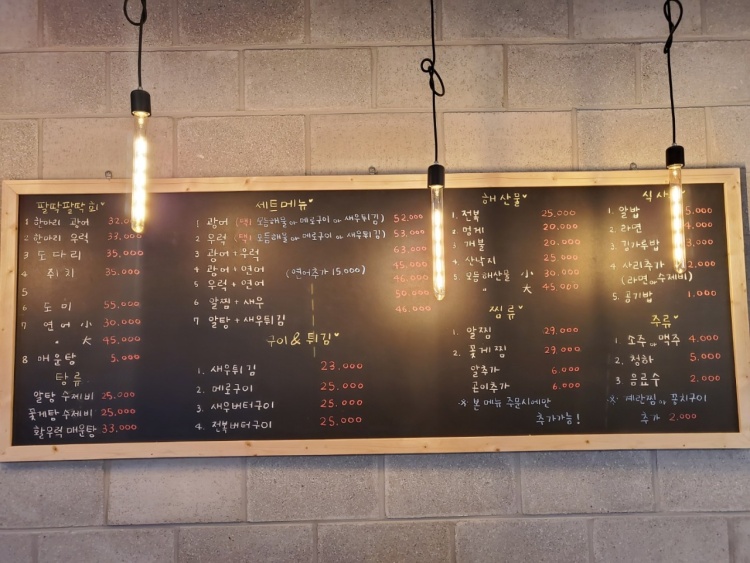 팔딱팔딱 회
1 한마리 광어 32.0
2 한마리 우럭 33.000
3 도다리 35.000
4 쥐치 35.000
5
6 도미 55.000
7 연어 小 30.000
" 大 45.000
8 매운탕 5.000
탕류
알탕 수제비 25.000
꽃게탕 수제비 25.000
활우럭 매운탕 33.000
세트메뉴
1 광어 (택1 모듬해물 or 메로구이 or 새우튀김) 52.000
2 우럭 (택1 모듬해물 or 메로구이 or 새우튀김) 53.000
3 광어 + 우럭 63.000
4 광어 + 연어 (연어추가 15.000)
5 우럭 + 연어
6 알찜 + 새우 50.000
7 알탕 + 새우튀김 46.000
구이 & 튀김
1. 새우튀김 23.000
2. 메로구이 25.000
3. 새우버터구이 25.000
4. 전복버터구이 25.000
해산물
1. 전복 25.000
2. 멍게 20.000
3. 개불 20.000
4. 산낙지 25.000
5. 모듬해산물 小 30.000
" 大 45.000
찜류
1. 알찜 29.000
2. 꽃게찜 29.000
알추가 6.000
곤이추가 6.000
※ 본 메뉴 주문시에만
추가가능!
식사
1. 알밥 5.000
2. 라면 4.000
3. 김가루밥 3.000
4. 사리추가 2.000
(라면 or 수제비)
5. 공기밥 1.000
주류
1. 소주 or 맥주 4.000
2. 청하 5.000
3 음료수 2.000
※ 계란찜 or 꽁치구이
추가 2.000